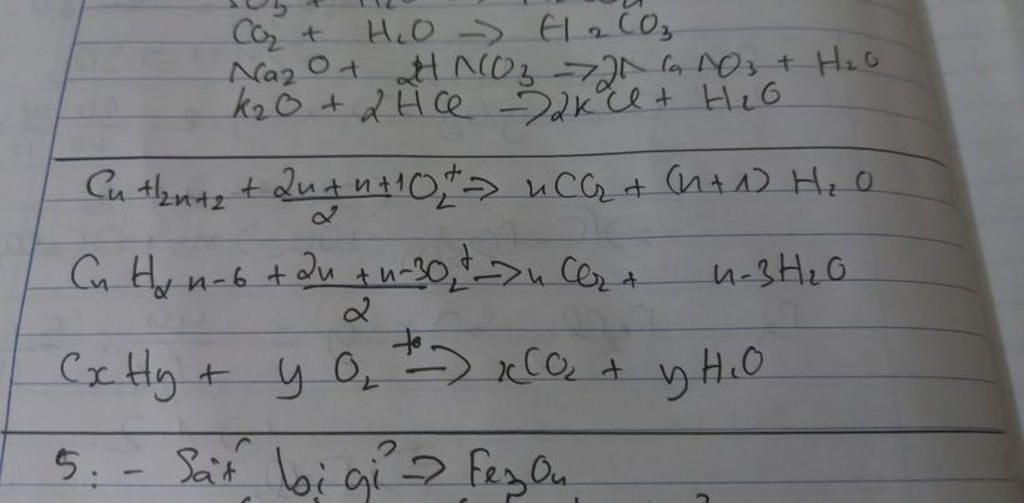 CO₂ + H₂O → H₂CO₃
Na₂O + 2HNO₃ → 2NaNO₃ + H₂O
K₂O + 2HCl → 2KCl + H₂O
CnH2n+2 + (2n+n+1)/2 O₂ →t nCO₂ + (n+1) H₂O
CnH2n-6 + (2n+n-3)/2 O₂ →t nCO₂ + n-3H₂O
CxHy + y O₂ →t° xCO₂ + yH₂O
5: - Sắt bị gỉ → Fe₃O₄